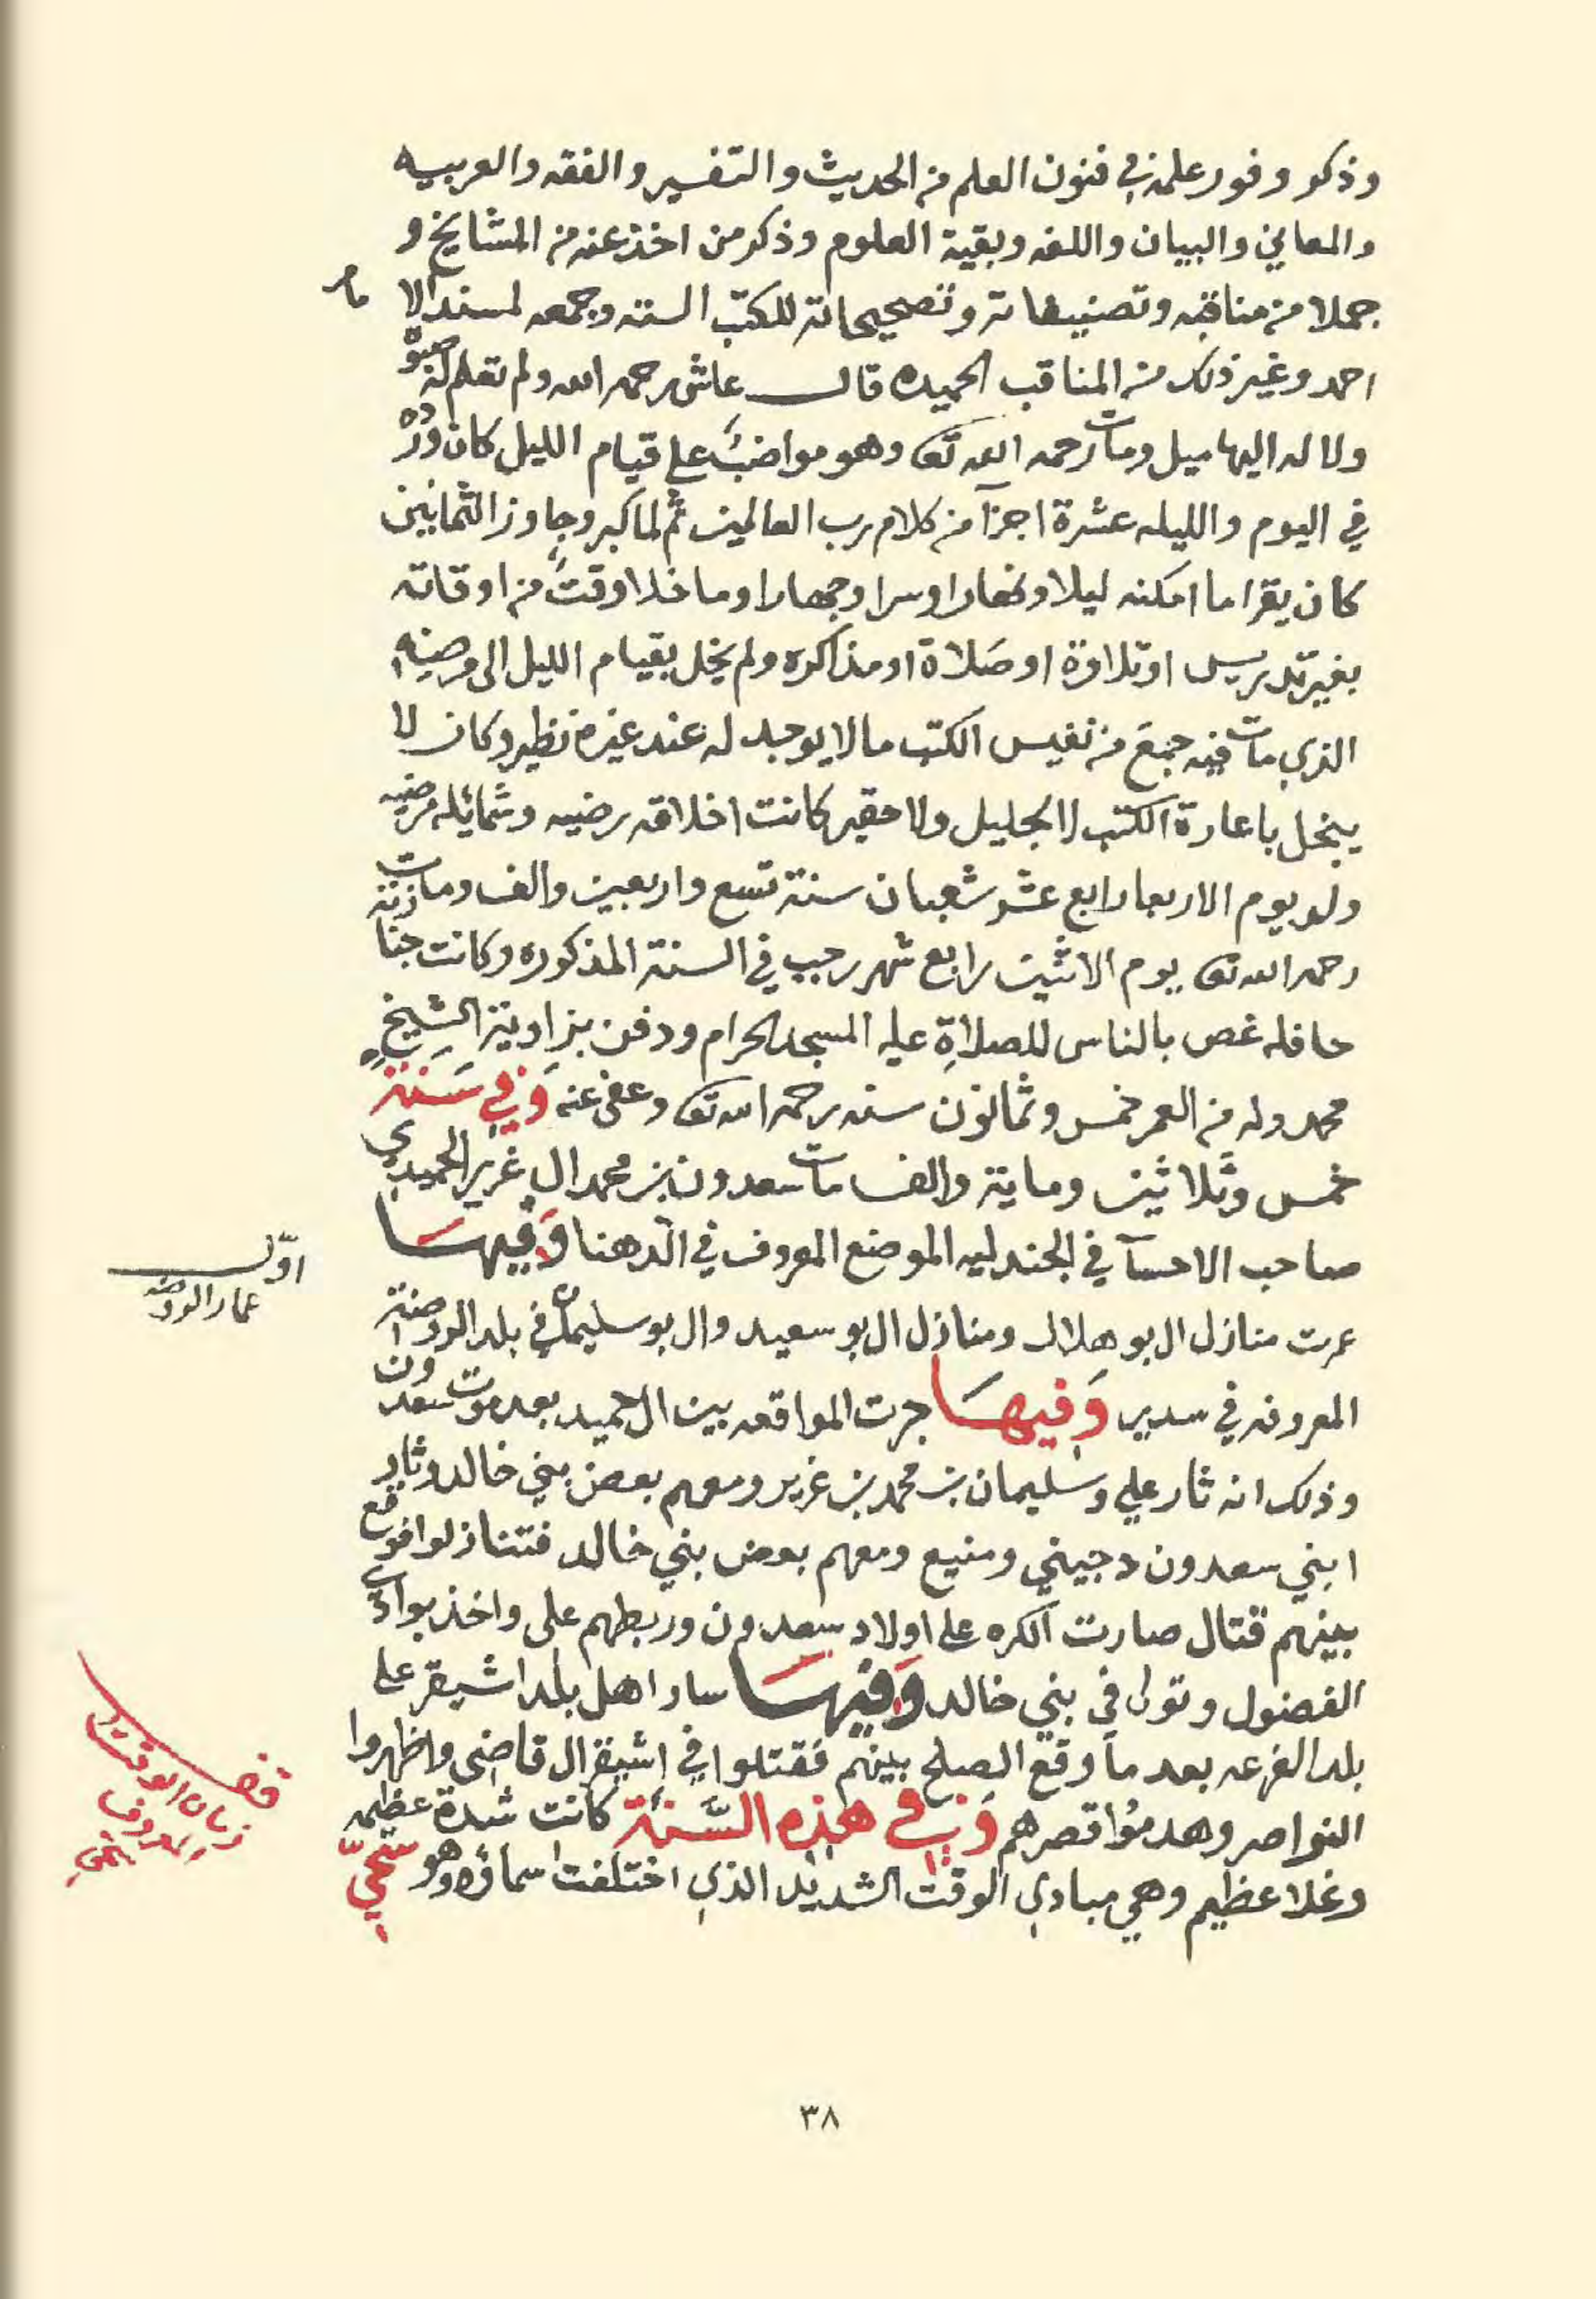 وذكر وفور علمه في فنون العلم من الحديث والتفسير والفقه والعربيه
والمعاني والبيان واللغه وبقية العلوم وذكر من اخذ عنه من المشايخ و
جملا من مناقبه وتصنيفاته وتصحيحاته للكتب السته وجمعه لمسند الامام
احمد وغير ذلك من المناقب الحميده قال عاش رحمه الله ولم تعلم له صبوة
ولا له اليها ميل ومات رحمه الله تعالى وهو مواضب على قيام الليل كان ورده
في اليوم والليله عشرة اجزآ من كلام رب العالمين ثم لما كبر وجاوز الثمانين
كان يقرا ما امكنه ليلا ونهارا وسرا وجهارا وما خلا وقت من اوقاته
بغير تدريس او تلاوة او صلاة او مذاكره ولم يخل بقيام الليل الى مرضه
الذي مات فيه جمع من نفيس الكتب ما لا يوجد له عند غيره نظير وكان لا
يبخل باعارة الكتب لا لجليل ولا حقير كانت اخلاقه رضيه وشمائله مرضيه
ولد يوم الاربعا رابع عشر شعبان سنة تسع واربعين والف ومات
رحمه الله تعالى يوم الاثنين رابع شهر رجب في السنة المذكوره وكانت جنازته
حافله غص بالناس للصلاة عليه المسجد الحرام ودفن بزاوية الشيخ
محمد وله من العمر خمس وثمانون سنه رحمه الله تعالى وعفى عنه وفي سنة
خمس وثلاثين وماية والف مات سعدون بن محمد ال غرير الحميدي
صاحب الاحسآ في الجندليه الموضع المعروف في الدهنا وفيها
اول
عمار الروضه
عمرت منازل ال بو هلال ومنازل ال بو سعيد وال بو سليمان في بلد الروضة
المعروفه في سدير وفيها جرت المواقعه بين ال حميد بعد موت سعدون
وذلك انه ثار علي وسليمان بن محمد بن غرير ومعهم بعض بني خالد وثار
ابني سعدون دجيني ومنيع ومعهم بعض بني خالد فتنازلوا فوقع
بينهم قتال صارت الكره على اولاد سعدون وربطهم علي واخذ بوادي
الفضول وتولى في بني خالد وفيها سار اهل بلد اشيقر على
بلد الفرعه بعد ما وقع الصلح بينهم فقتلوا في اشيقر ال قاضي واظهروا
النواصر وهدموا قصرهم وفي هذه السنة كانت شدة عظيمه
وغلا عظيم وهي مبادي الوقت الشديد الذي اختلفت اسماؤه وهو سحي
زمان الوقت
المعروف
٣٨